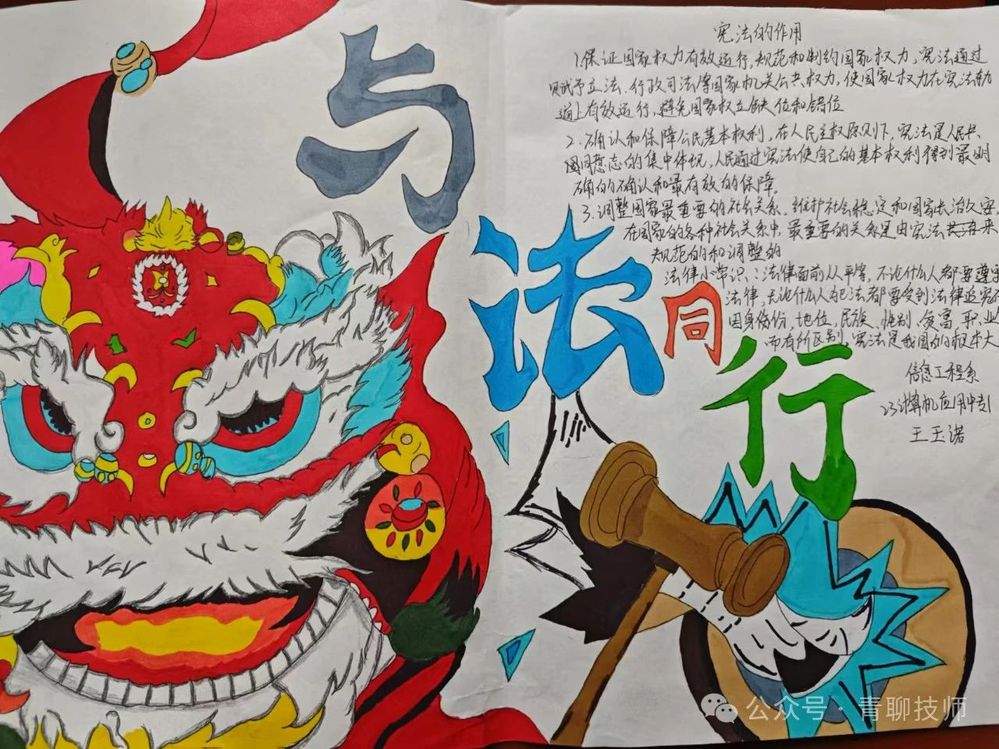 与
法
同
行
宪法的作用
1.保证国家权力有效运行,规范和制约国家权力,宪法通过
赋予立法、行政司法等国家机关公共权力,使国家权力在宪法轨
道上有效运行,避免国家权立缺位和错位
2.确认和保障公民基本权利,在人民主权原则下,宪法是人民共
同意志的集中体现,人民通过宪法使自己的基本权利得到最明
确的确认和最有效的保障。
3.调整国家最重要的社会关系,维护社会稳定和国家长治久安
在国家的各种社会关系中,最重要的关系是由宪法来
规范的和调整的
法律小常识:法律面前从平等,不论什么人都要遵守
法律,无论什么人犯法都要受到法律追究
因身份,地位,民族、性别、贫富、职业
而有所区别,宪法是我国的根本大
信息工程系
23计算机应用中
王玉诺
公众号·青聊技师